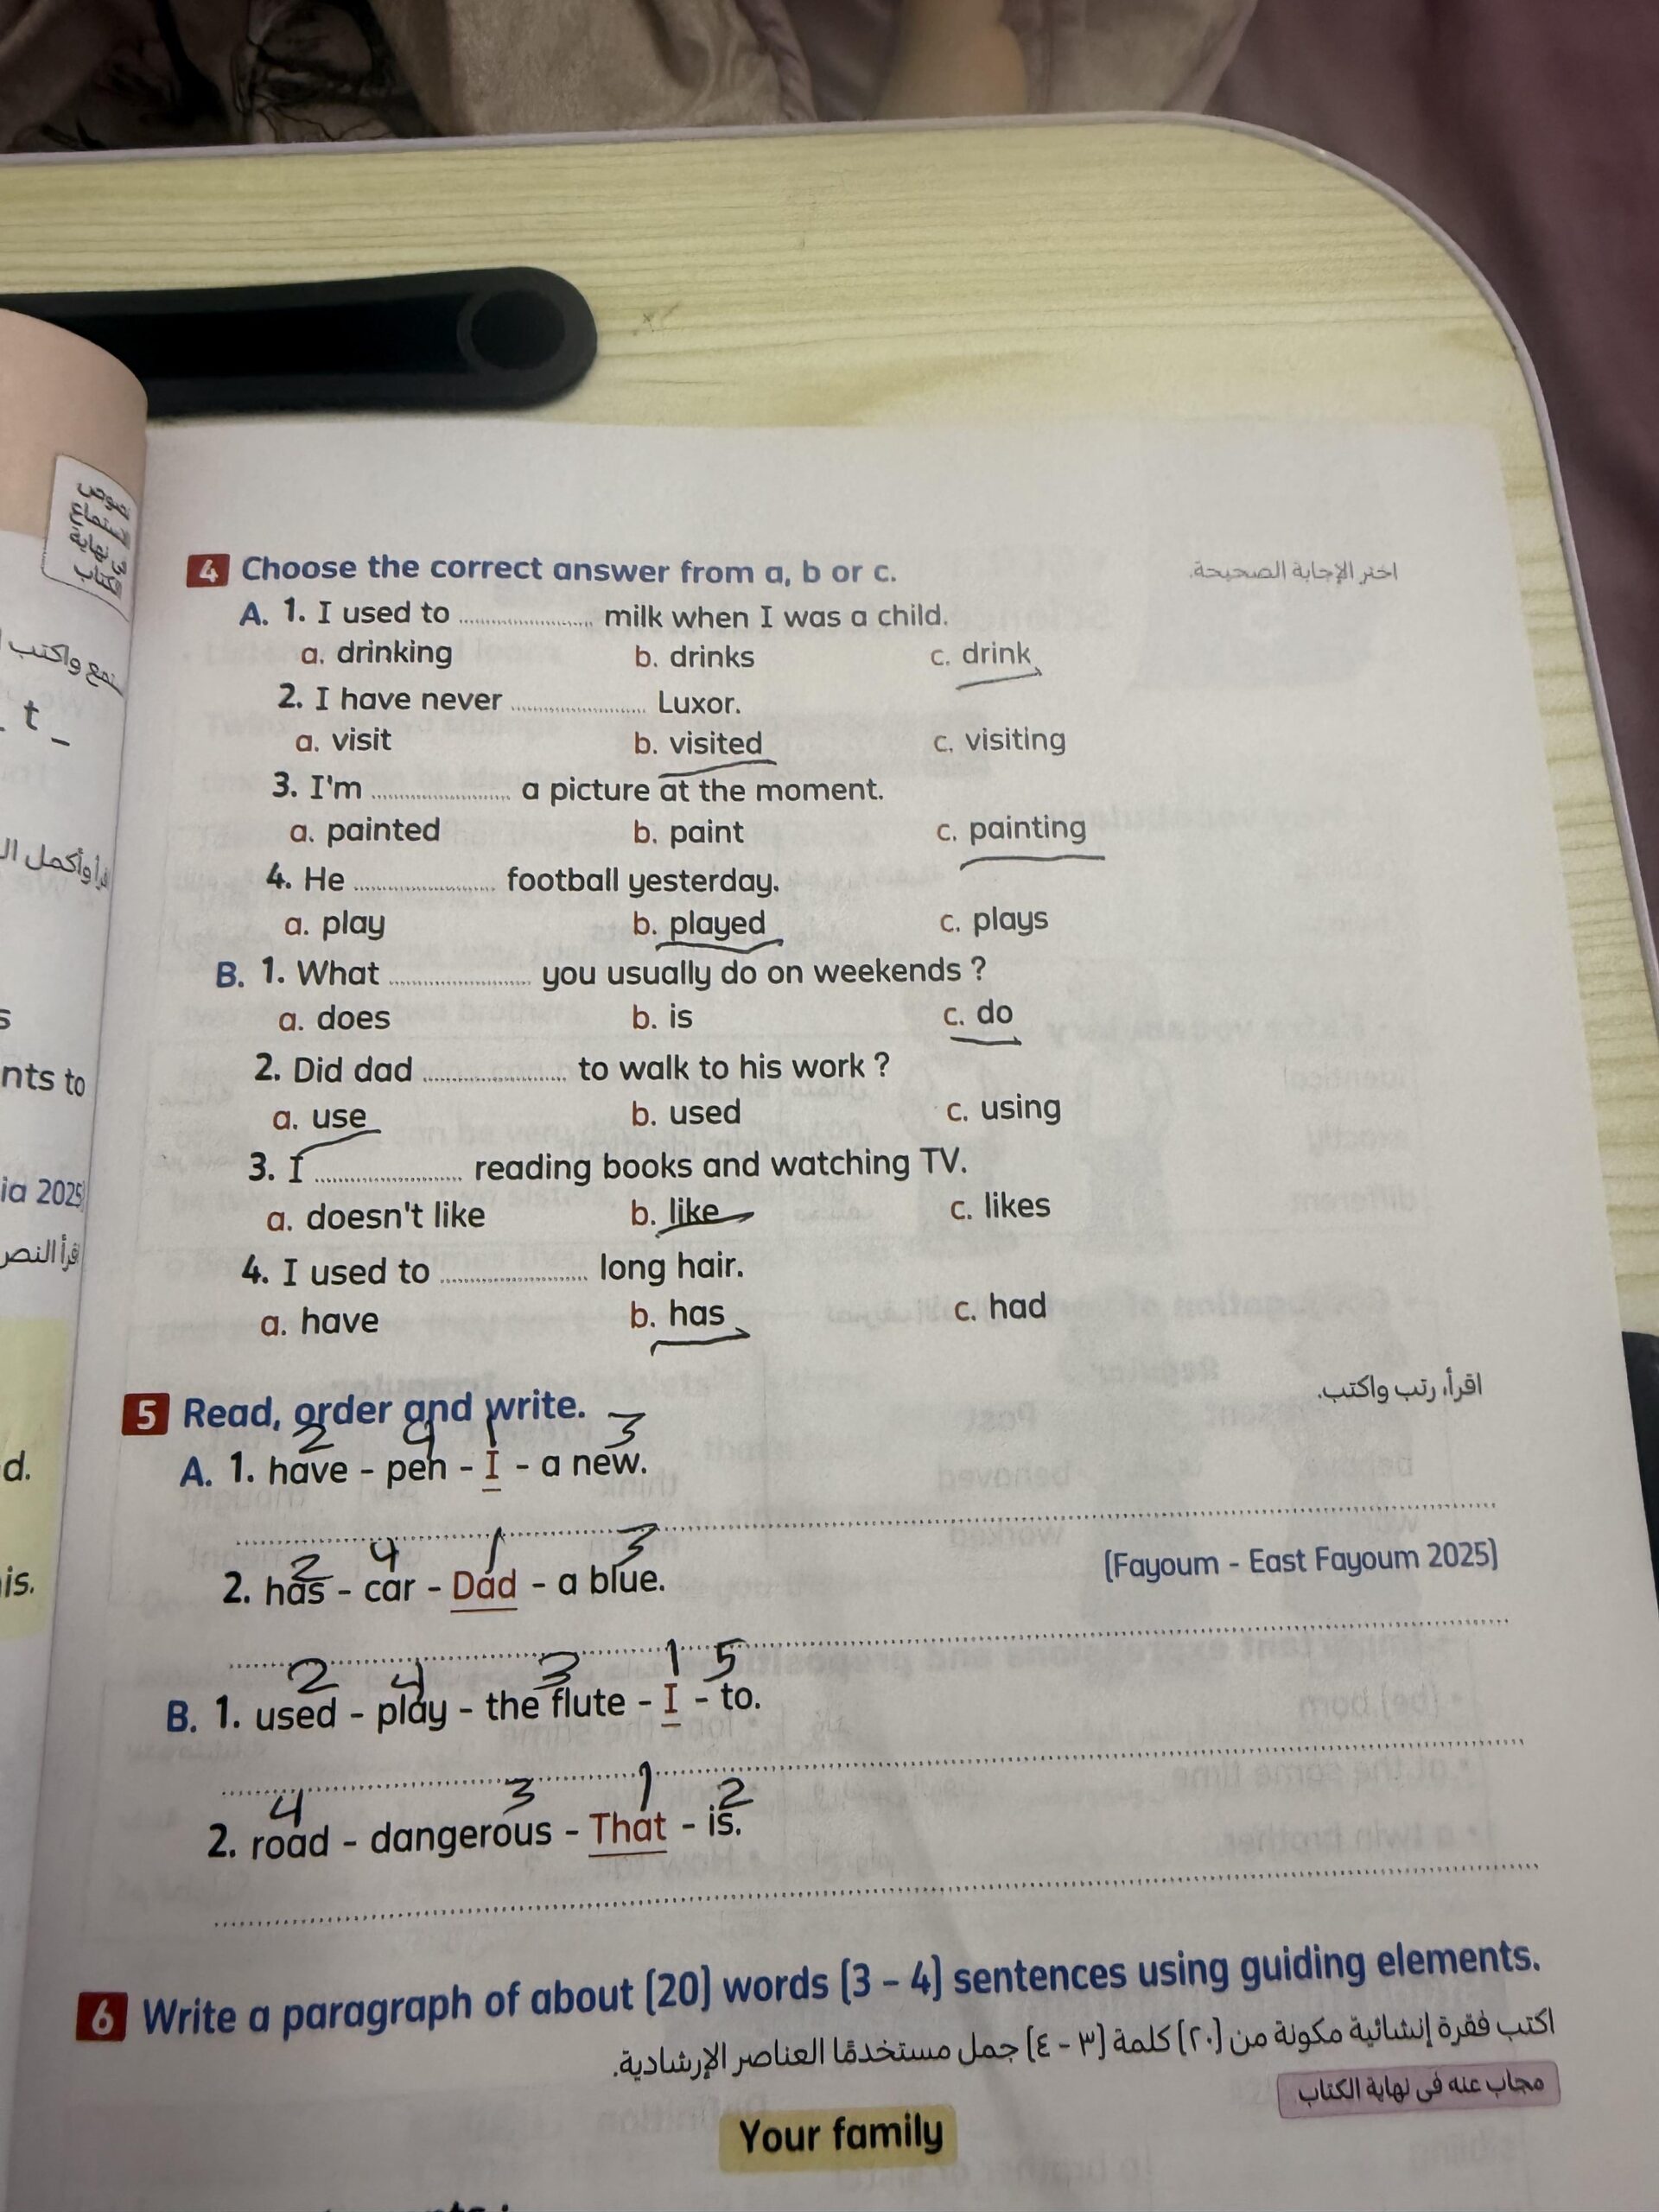 نصوص
الاستماع
فى نهاية
الكتاب
t _
nts to
ia 2025
d.
is.
4 Choose the correct answer from a, b or c.
اختر الإجابة الصحيحة.
A. 1. I used to ........ milk when I was a child.
a. drinking b. drinks c. drink
2. I have never ........ Luxor.
a. visit b. visited c. visiting
3. I'm ........ a picture at the moment.
a. painted b. paint c. painting
4. He ........ football yesterday.
a. play b. played c. plays
B. 1. What ........ you usually do on weekends ?
a. does b. is c. do
2. Did dad ........ to walk to his work ?
a. use b. used c. using
3. I ........ reading books and watching TV.
a. doesn't like b. like c. likes
4. I used to ........ long hair.
a. have b. has c. had
5 Read, order and write.
اقرأ، رتب واكتب.
2 4 1 3
A. 1. have - pen - I - a new.
2 4 1 3
2. has - car - Dad - a blue.
(Fayoum - East Fayoum 2025)
2 4 3 1 5
B. 1. used - play - the flute - I - to.
4 3 1 2
2. road - dangerous - That - is.
6 Write a paragraph of about (20) words (3 - 4) sentences using guiding elements.
اكتب فقرة إنشائية مكونة من (٢٠) كلمة (٣ - ٤) جمل مستخدمًا العناصر الإرشادية.
مجاب عنه فى نهاية الكتاب
Your family